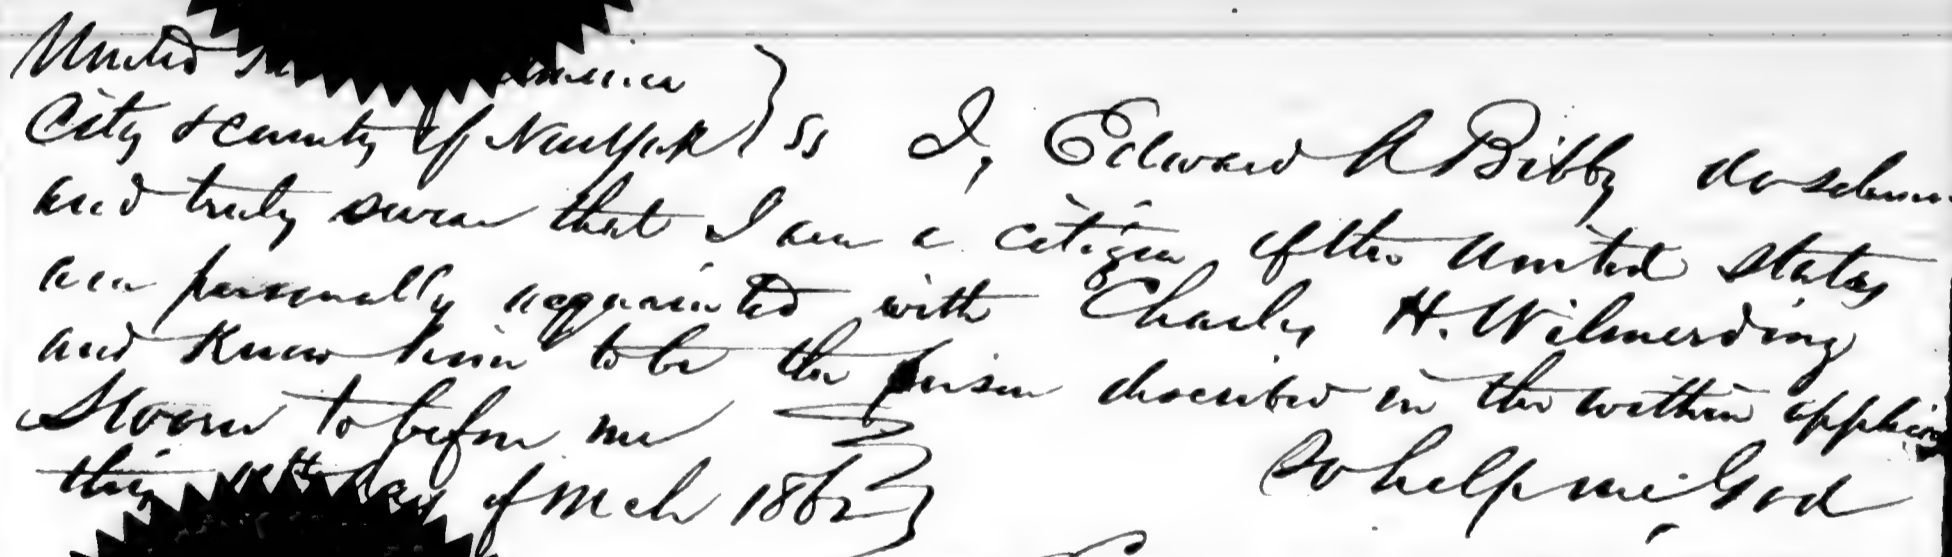 United St America
City & County of New York } ss I, Edward A Bibby do solemn
and truly swear that I am a citizen of the United States
am personally acquainted with Charles H. Wilmerding
and know him to be the person described in the within applica
Sworn to before me
So help me God
this day of Mch 1862